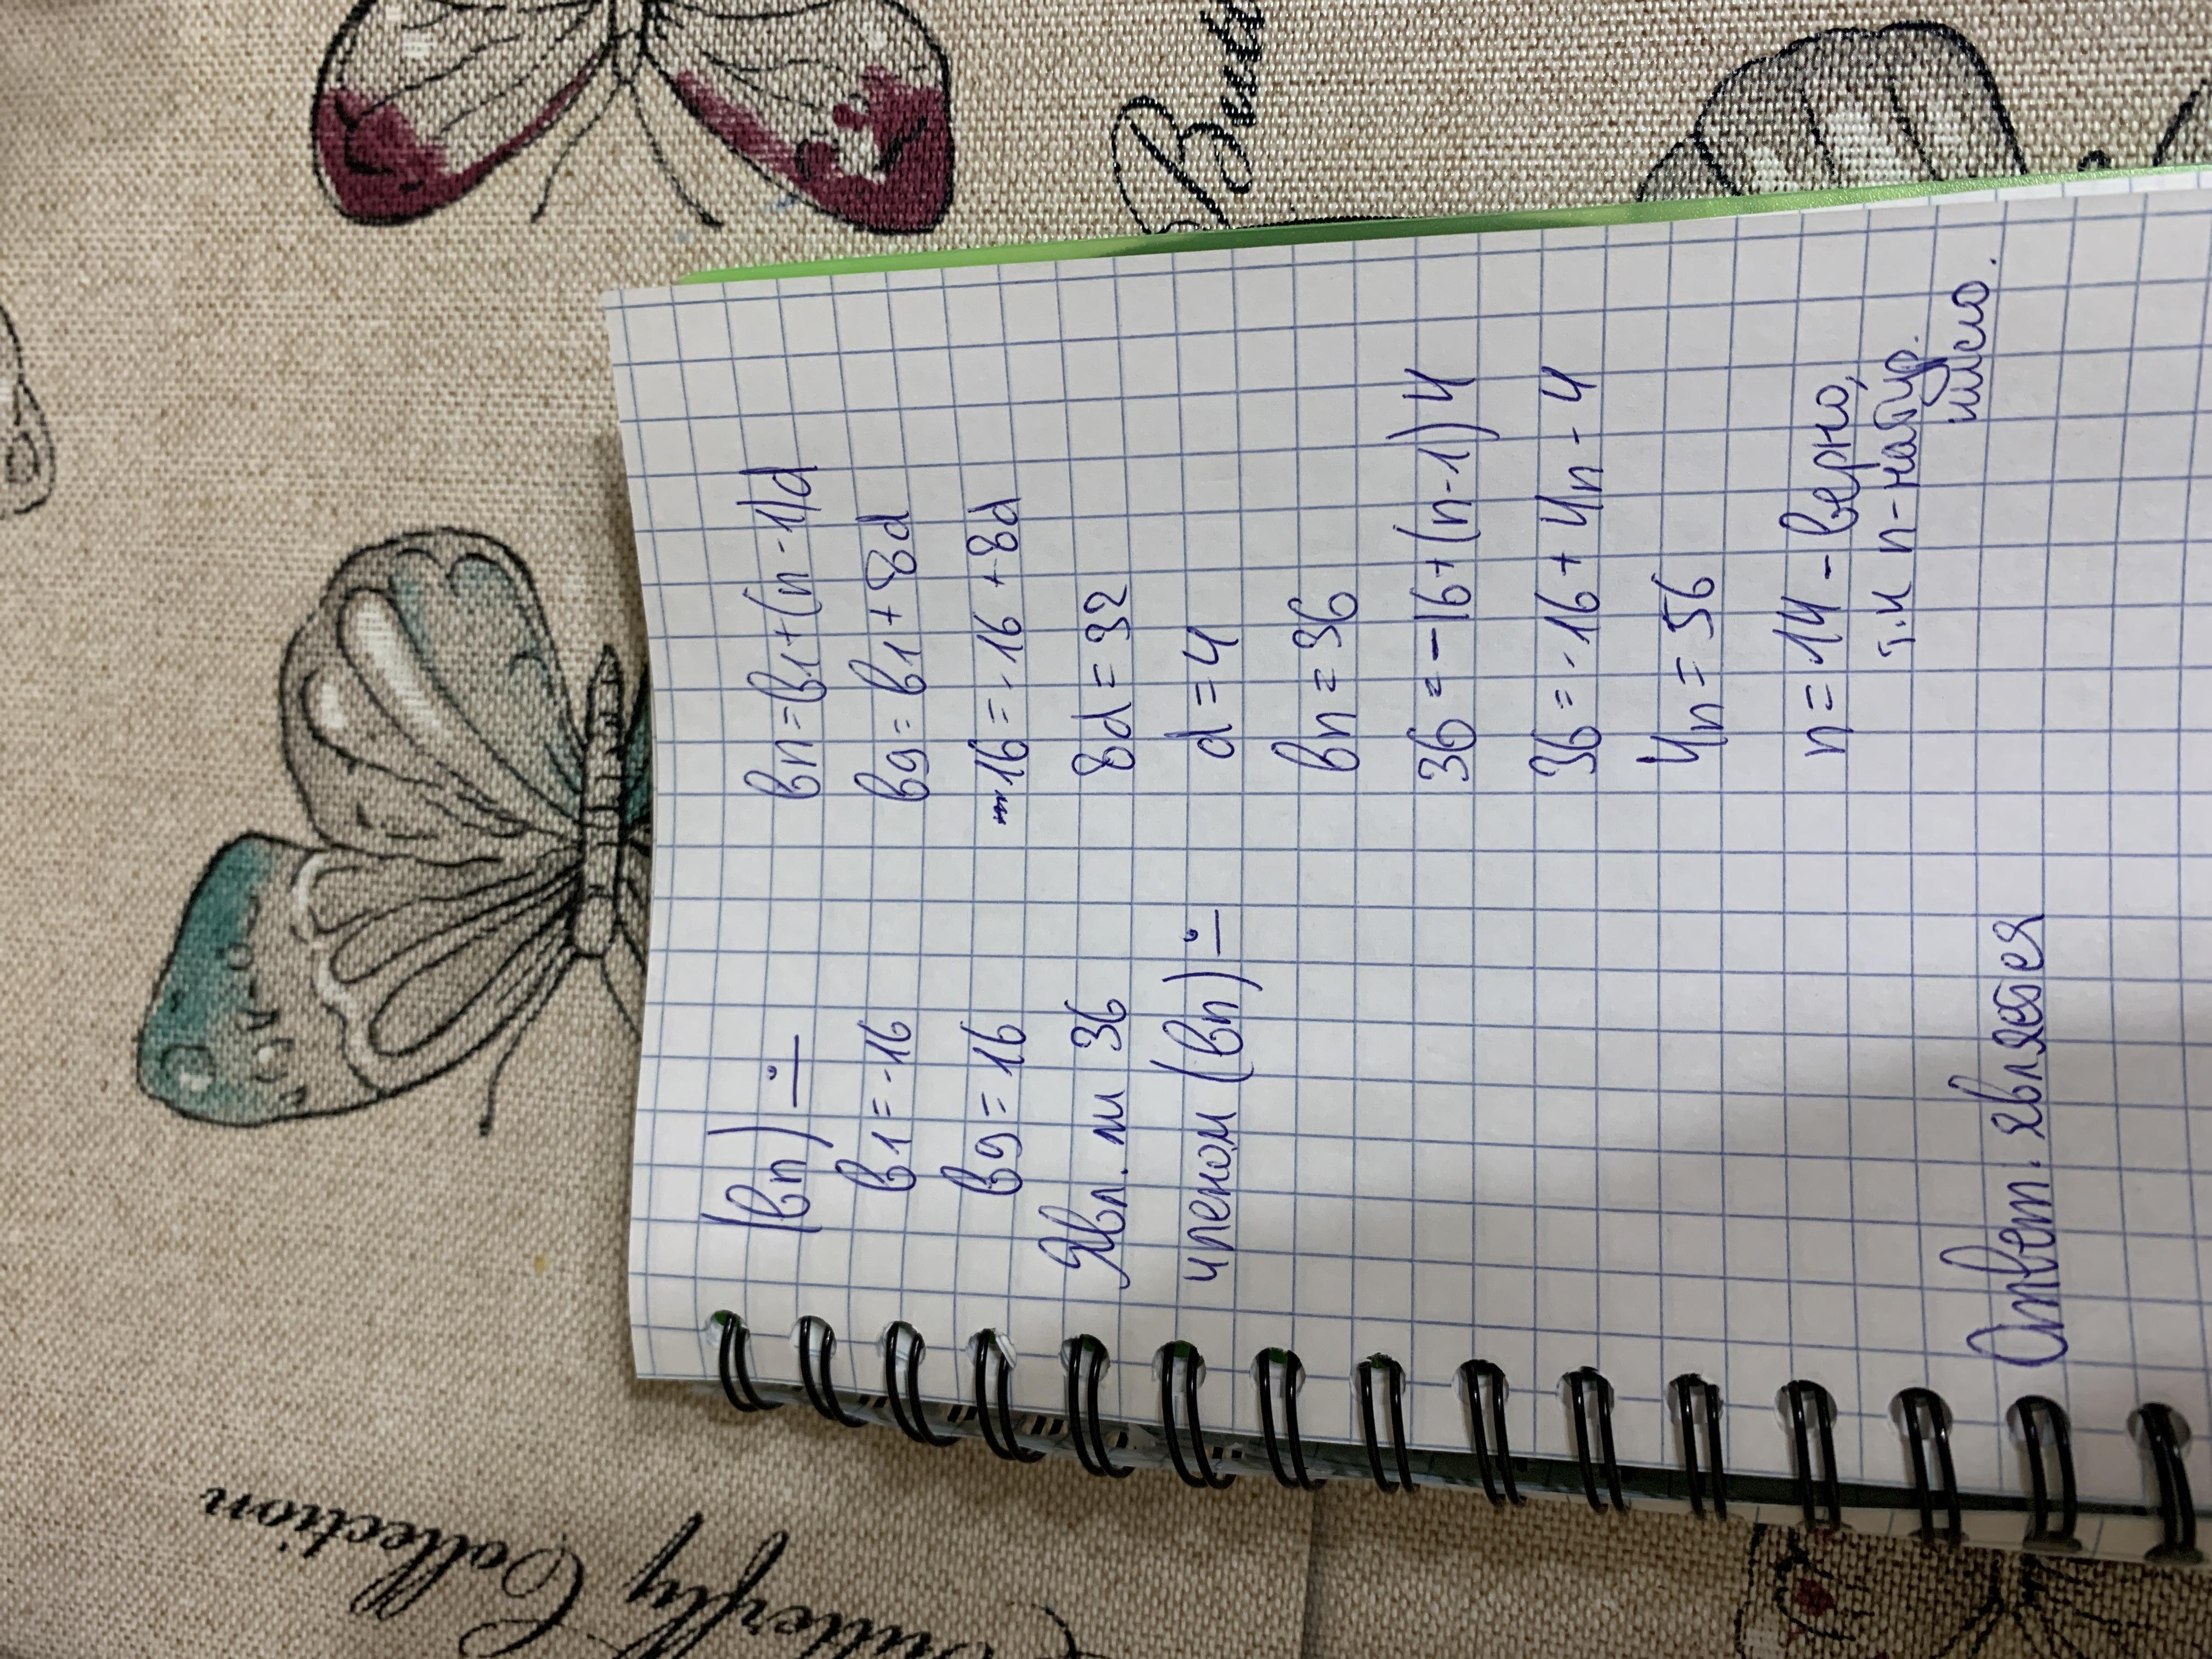 (вn) ÷
в1 = -16
в9 = 16
Явл. ли 36
членом (вn) ÷
вn = в1 + (n - 1)d
в9 = в1 + 8d
16 = -16 + 8d
8d = 32
d = 4
вn = 36
36 = -16 + (n - 1) 4
36 = -16 + 4n - 4
4n = 56
n = 14 - верно,
т.к n - натур.
число.
Ответ: является
Butterfly Collection
Butt